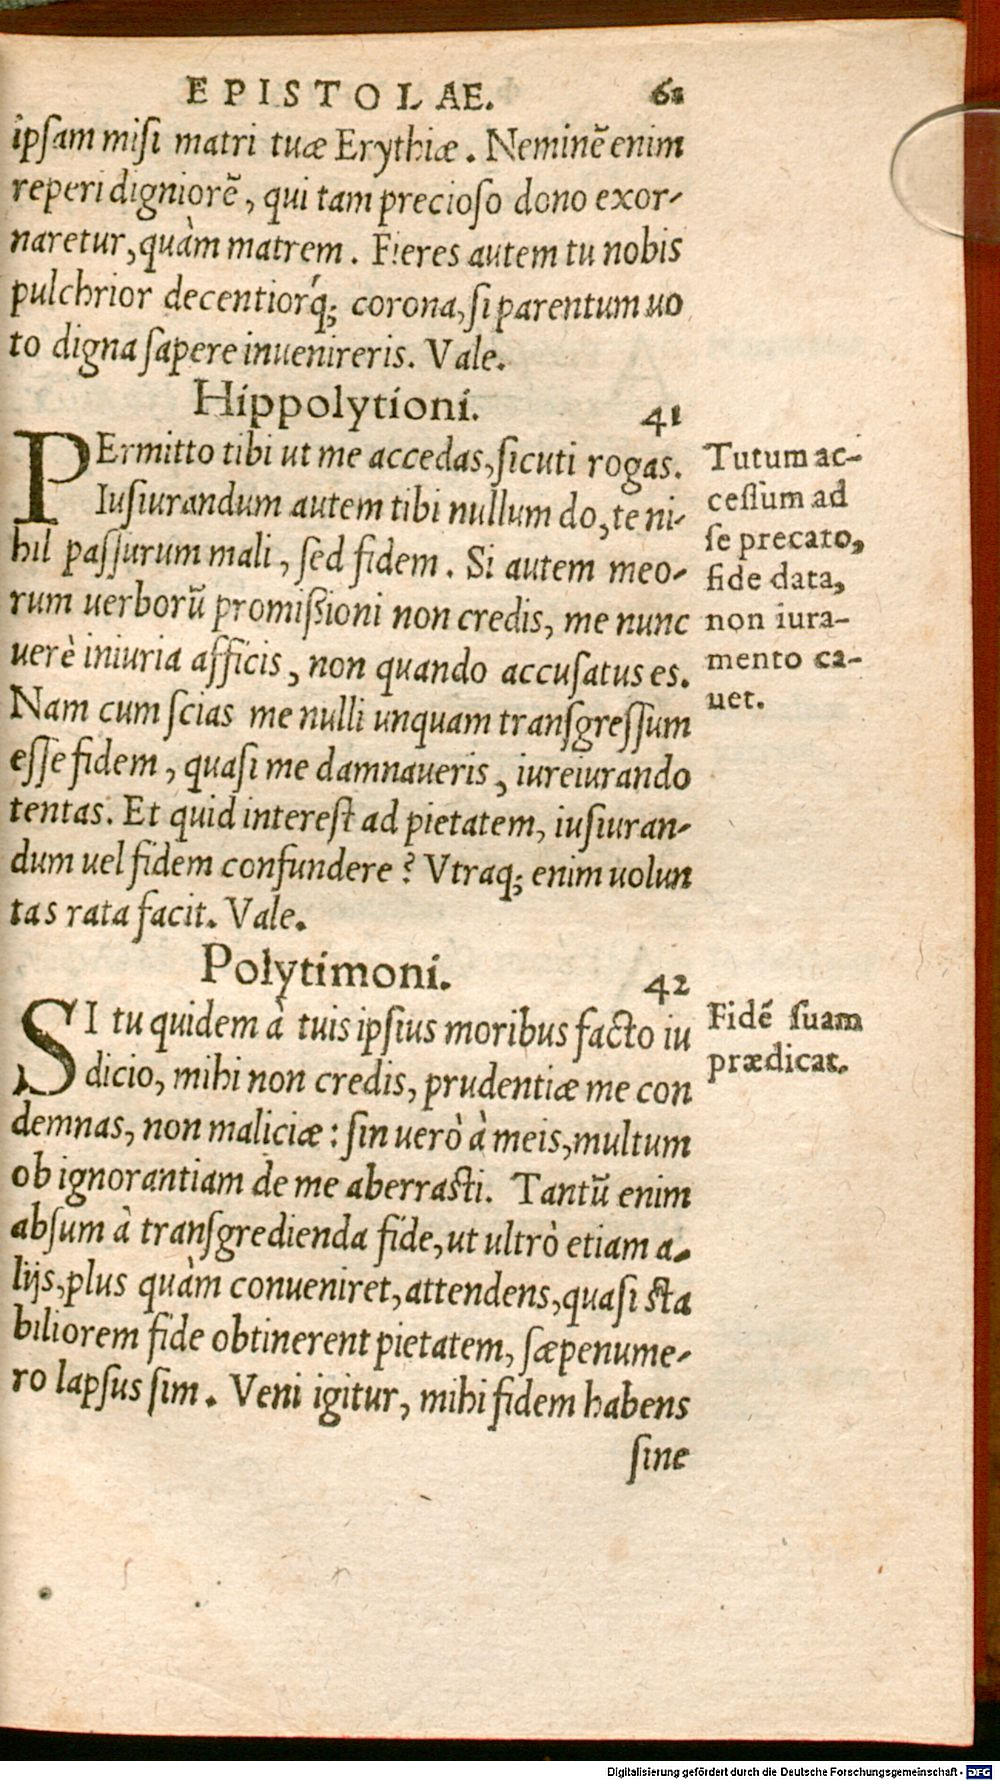 EPISTOLAE. 61
ipsam misi matri tuæ Erythiæ. Neminẽ enim
reperi digniorẽ, qui tam precioso dono exor-
naretur, quàm matrem. Fieres autem tu nobis
pulchrior decentiorq́; corona, si parentum uo
to digna sapere inuenireris. Vale.
Hippolytioni. 41
PErmitto tibi ut me accedas, sicuti rogas.
Iusiurandum autem tibi nullum do, te ni-
hil passurum mali, sed fidem. Si autem meo-
rum uerborũ promißioni non credis, me nunc
uerè iniuria afficis, non quando accusatus es.
Nam cum scias me nulli unquam transgressum
esse fidem, quasi me damnaueris, iureiurando
tentas. Et quid interest ad pietatem, iusiuran-
dum uel fidem confundere? Vtraq; enim uolun
tas rata facit. Vale.
Tutum ac-
cessum ad
se precato,
fide data,
non iura-
mento ca-
uet.
Polytimoni. 42
SI tu quidem à tuis ipsius moribus facto iu
dicio, mihi non credis, prudentiæ me con
demnas, non maliciæ: sin uerò à meis, multum
ob ignorantiam de me aberrasti. Tantũ enim
absum à transgredienda fide, ut ultrò etiam a-
lijs, plus quàm conueniret, attendens, quasi sta
biliorem fide obtinerent pietatem, sæpenume-
ro lapsus sim. Veni igitur, mihi fidem habens
sine
Fidẽ suam
prædicat.
Digitalisierung gefördert durch die Deutsche Forschungsgemeinschaft - DFG